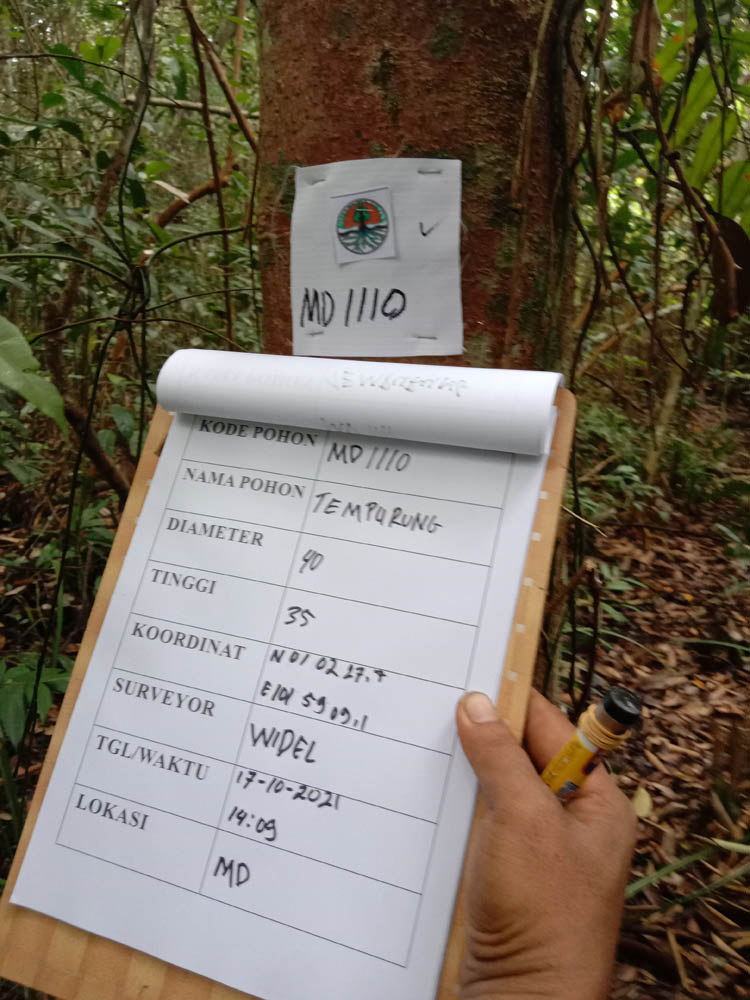 MD 1110
KODE POHON MD 1110
NAMA POHON TEMPURUNG
DIAMETER 40
TINGGI 35
KOORDINAT N 01 02 27.7
E101 59 09.1
SURVEYOR WIDEL
TGL/WAKTU 17-10-2021
14:09
LOKASI MD